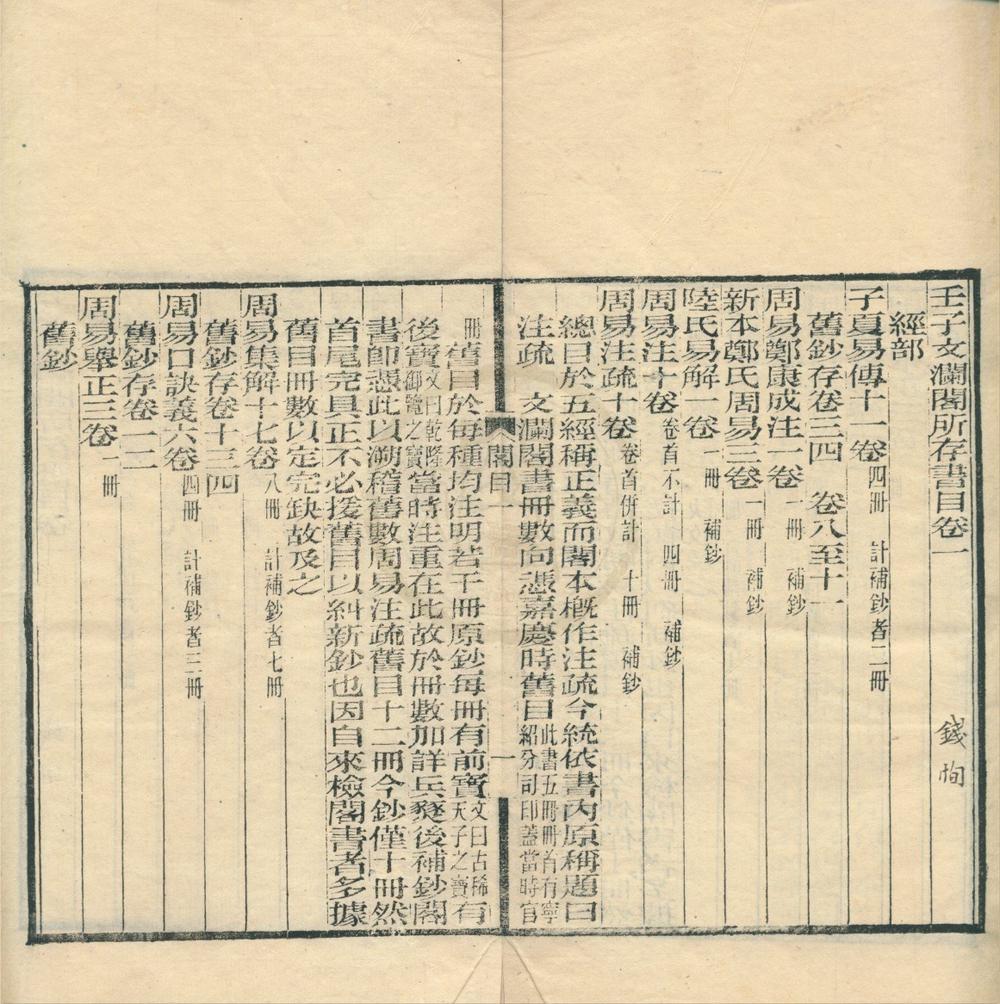 壬子文瀾閣所存書目卷一
錢恂
經部
子夏易傳十一卷 四冊 計補鈔者二冊
舊鈔存卷三四 卷八至十一
周易鄭康成注一卷 一冊 補鈔
新本鄭氏周易三卷 一冊 補鈔
陸氏易解一卷 一冊 補鈔
周易注十卷 卷首不計 四冊 補鈔
周易注疏十卷 卷首併計 十冊 補鈔
總目於五經稱正義而閣本概作注疏今統依書內原稱題曰
注疏 文瀾閣書冊數向憑嘉慶時舊目 此書五冊冊首有寧紹分司印蓋當時官
冊 舊目於每種均注明若干冊原鈔每冊有前寶 文曰古稀天子之寶 有
後寶 文曰乾隆御覽之寶 當時注重在此故於冊數加詳兵燹後補鈔閣
書即憑此以溯稽舊數周易注疏舊目十二冊今鈔僅十冊然
首尾完具正不必援舊目以糾新鈔也因自來檢閣書者多據
舊目冊數以定完缺故及之
周易集解十七卷 八冊 計補鈔者七冊
舊鈔存卷十三四
周易口訣義六卷 四冊 計補鈔者三冊
舊鈔存卷一二
周易舉正三卷 一冊
舊鈔
閣目一
一